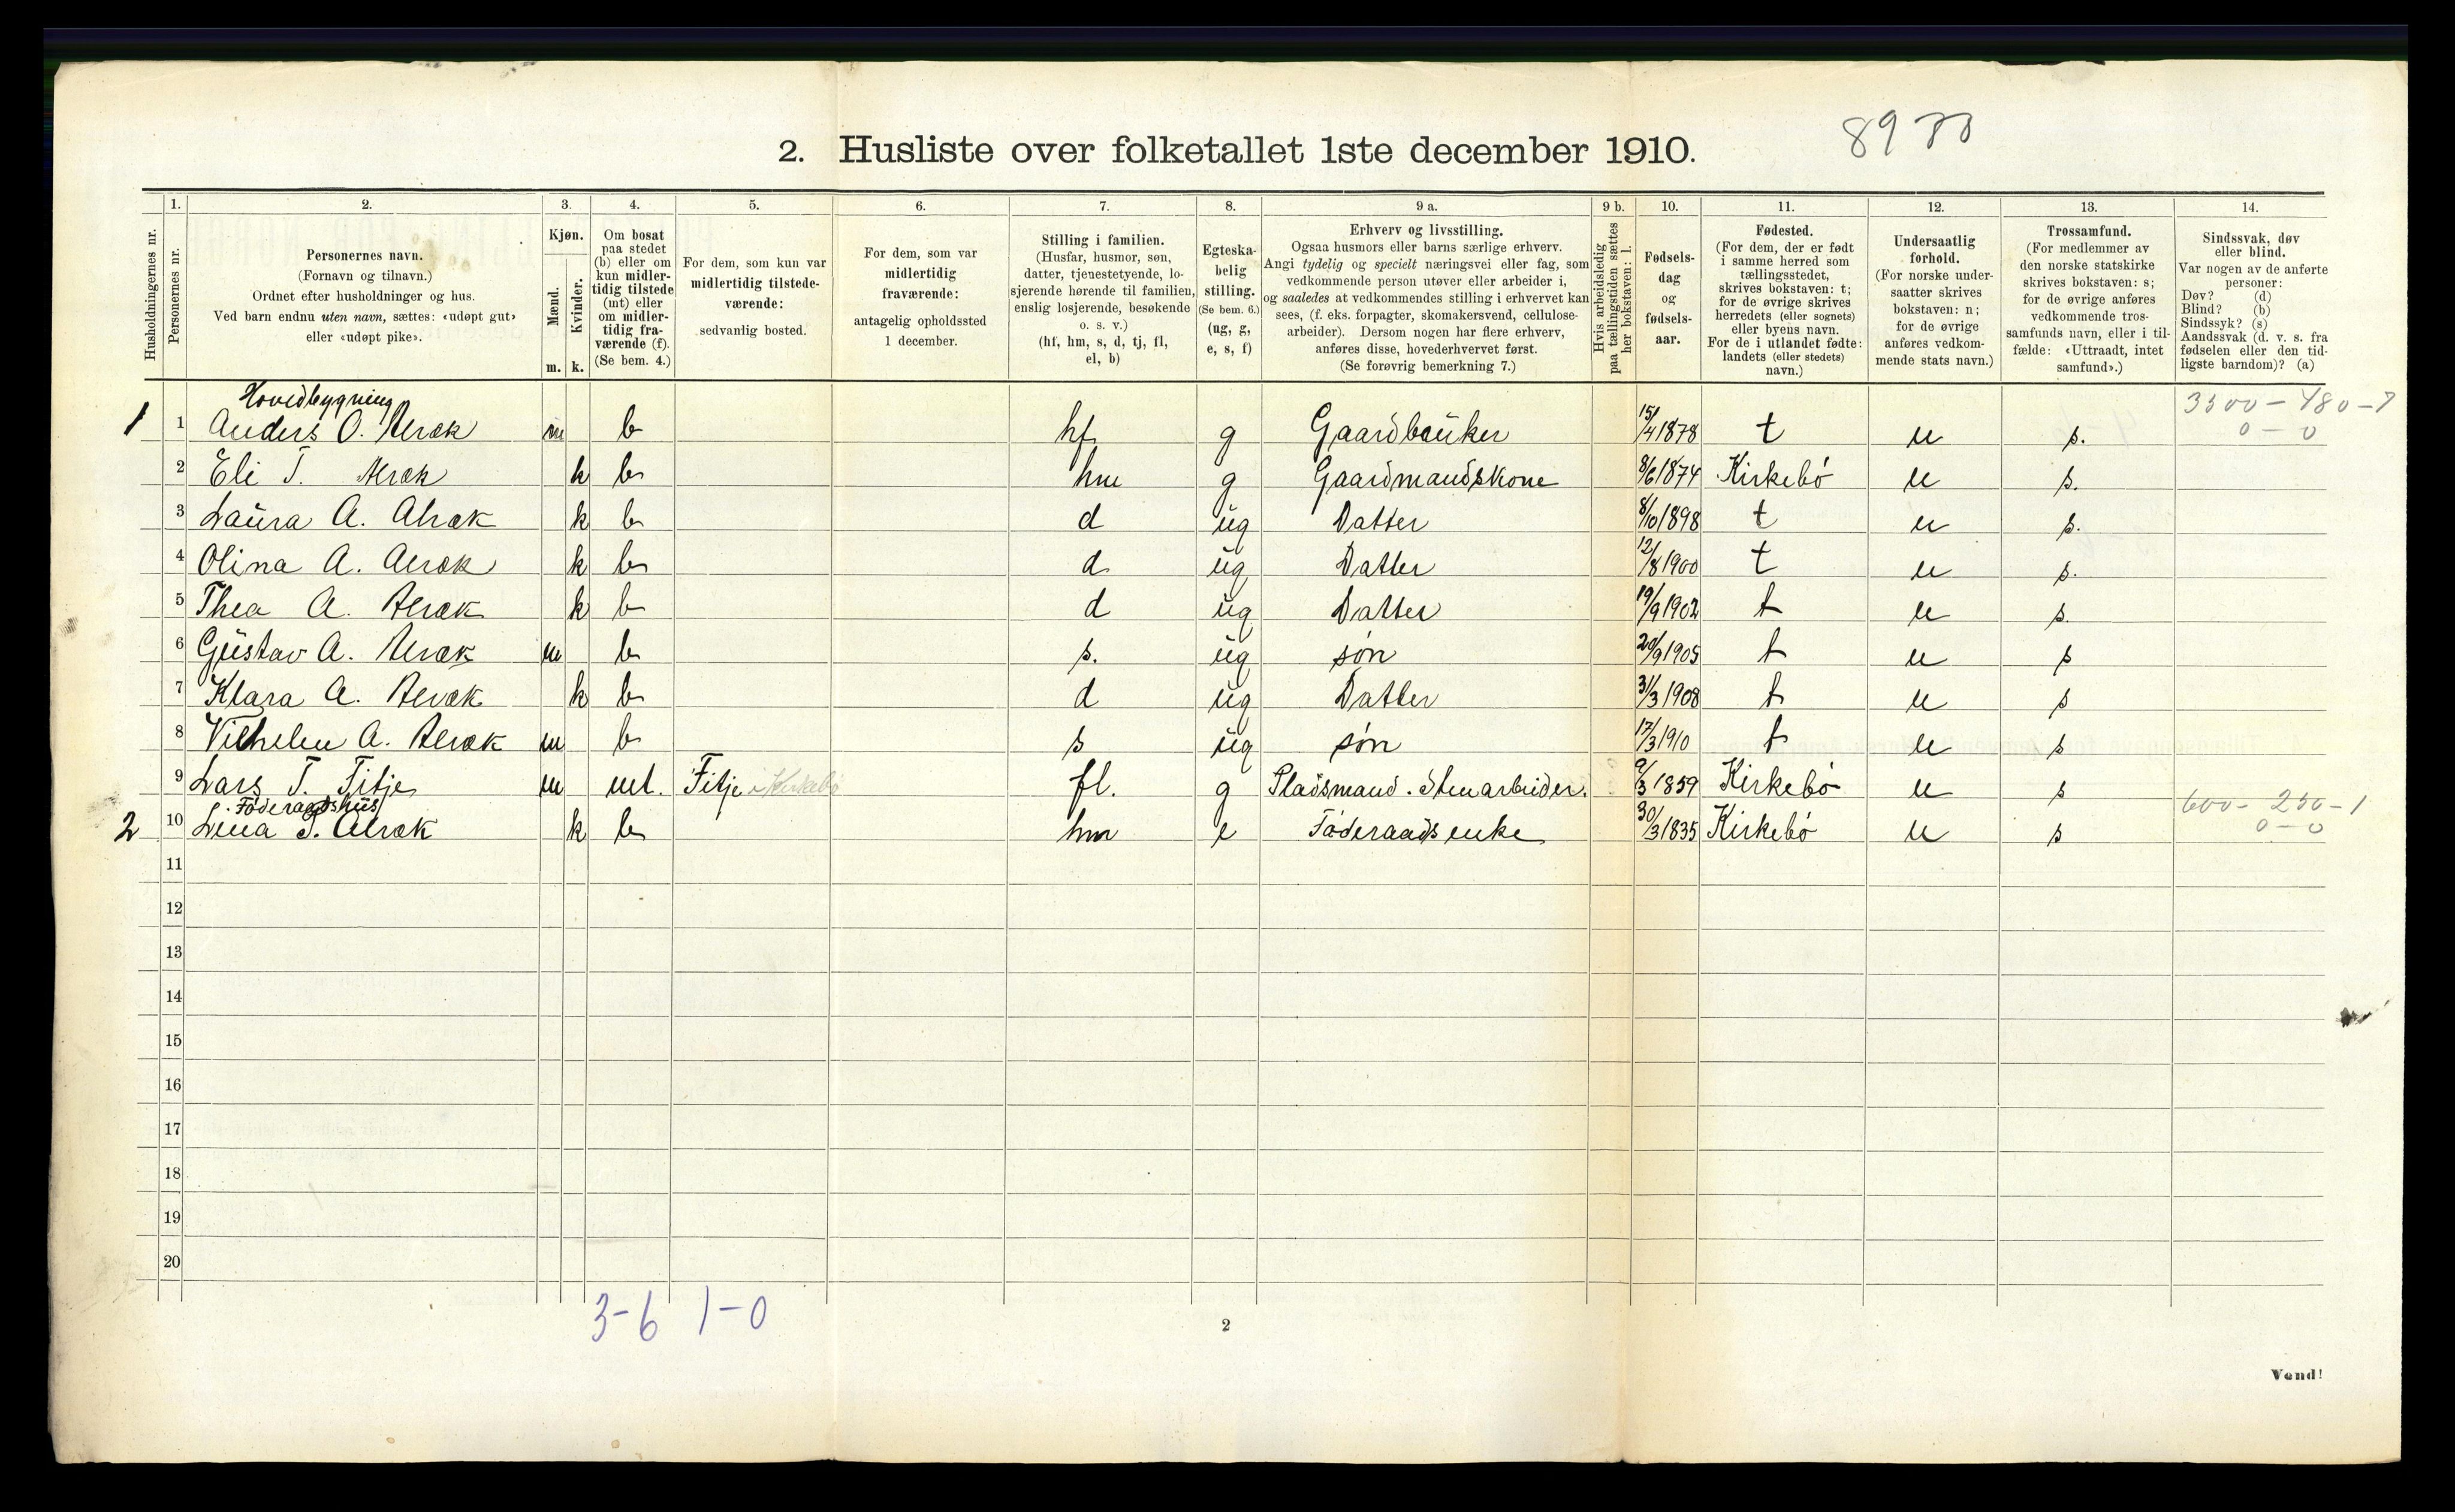 2. Husliste over folketallet 1ste december 1910.
1. 2. 3. 4. 5. 6. 7. 8. 9 a. 9 b. 10. 11. 12. 13. 14.
Husholdningernes nr.
Personernes nr.
Personernes navn.
(Fornavn og tilnavn.)
Ordnet efter husholdninger og hus.
Ved barn endnu uten navn, sættes: «udøpt gut»
eller «udøpt pike».
Kjøn.
Mænd.
Kvinder.
m. k.
Om bosat
paa stedet
(b) eller om
kun midler-
tidig tilstede
(mt) eller
om midler-
tidig fra-
værende (f).
(Se bem. 4.)
For dem, som kun var
midlertidig tilstede-
værende:
sedvanlig bosted.
For dem, som var
midlertidig
fraværende:
antagelig opholdssted
1 december.
Stilling i familien.
(Husfar, husmor, søn,
datter, tjenestetyende, lo-
sjerende hørende til familien,
enslig losjerende, besøkende
o. s. v.)
(hf, hm, s, d, tj, fl,
el, b)
Egteska-
belig
stilling.
(Se bem. 6.)
(ug, g,
e, s, f)
Erhverv og livsstilling.
Ogsaa husmors eller barns særlige erhverv.
Angi tydelig og specielt næringsvei eller fag, som
vedkommende person utøver eller arbeider i,
og saaledes at vedkommendes stilling i erhvervet kan
sees, (f. eks. forpagter, skomakersvend, cellulose-
arbeider). Dersom nogen har flere erhverv,
anføres disse, hovederhvervet først.
(Se forøvrig bemerkning 7.)
Hvis arbeidsledig
paa tællingstiden sættes
her bokstaven: l.
Fødsels-
dag
og
fødsels-
aar.
Fødested.
(For dem, der er født
i samme herred som
tællingsstedet,
skrives bokstaven: t;
for de øvrige skrives
herredets (eller sognets)
eller byens navn.
For de i utlandet fødte:
landets (eller stedets)
navn.)
Undersaatlig
forhold.
(For norske under-
saatter skrives
bokstaven: n;
for de øvrige
anføres vedkom-
mende stats navn.)
Trossamfund.
(For medlemmer av
den norske statskirke
skrives bokstaven: s;
for de øvrige anføres
vedkommende tros-
samfunds navn, eller i til-
fælde: «Uttraadt, intet
samfund».)
Sindssvak, døv
eller blind.
Var nogen av de anførte
personer:
Døv? (d)
Blind? (b)
Sindssyk? (s)
Aandssvak (d. v. s. fra
fødselen eller den tid-
ligste barndom)? (a)
Hovedbygning
1 1 Anders O. Alræk m b hf g Gaardbruker 15/4 1878 t n s. 0-0
2 Eli T. Alræk k b hm g Gaardmandskone 8/6 1874 Kirkebö n s.
3 Laura A. Alræk k b d ug Datter 8/10 1898 t n s.
4 Olina A. Alræk k b d ug Datter 12/8 1900 t n s.
5 Thea A. Alræk k b d ug Datter 19/9 1902 t n s.
6 Gustav A. Alræk m b s. ug søn 20/9 1905 t n s
7 Klara A. Alræk k b d ug Datter 31/3 1908 t n s
8 Vilhelm A. Alræk m b s ug søn 17/3 1910 t n s
9 Lars T. Fitje m mt. Fitje i Kirkebö fl. g Pladsmand. Stenarbeider. 9/3 1859 Kirkebö n s
Föderaadshus
600 - 250 - 1
2 10 Lina T. Alræk k b hm e Föderaads enke 30/3 1835 Kirkebö n s 0-0
11
12
13
14
15
16
17
18
19
20
3-6 1-0
2
Vend!